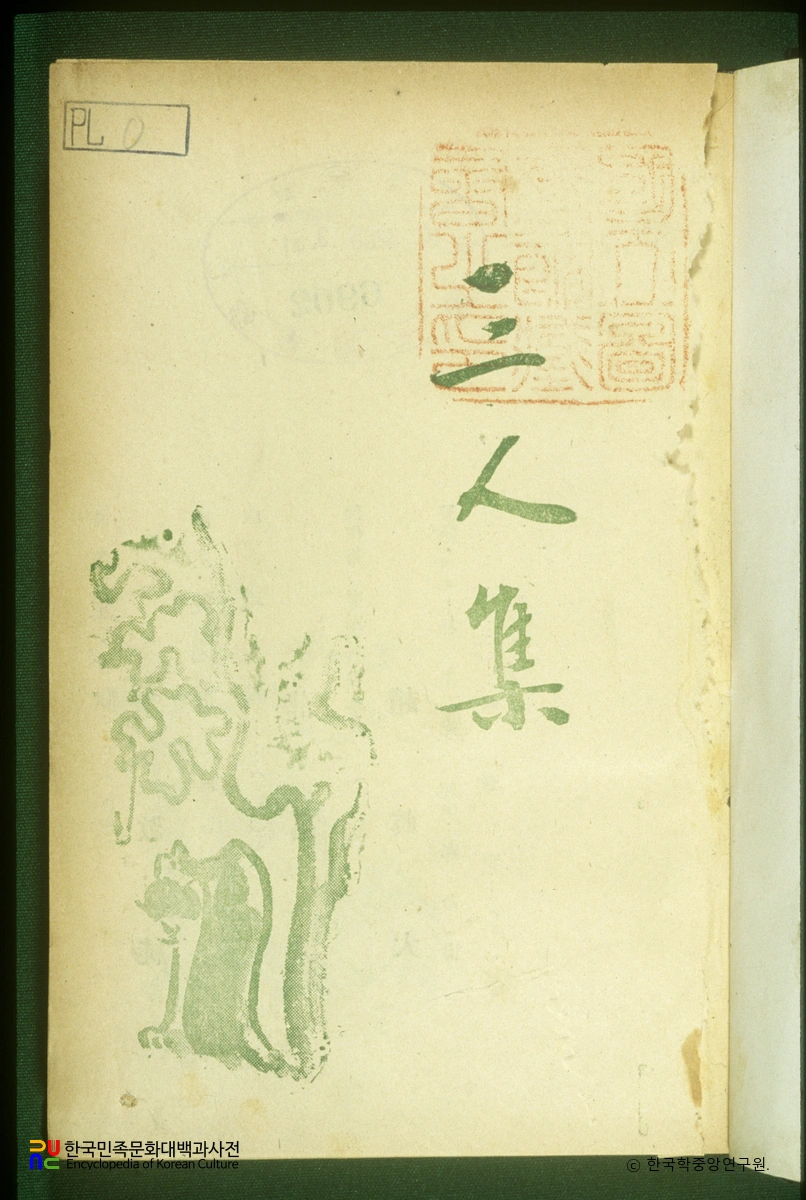 PL 0
三人集
한국민족문화대백과사전
Encyclopedia of Korean Culture
© 한국학중앙연구원.